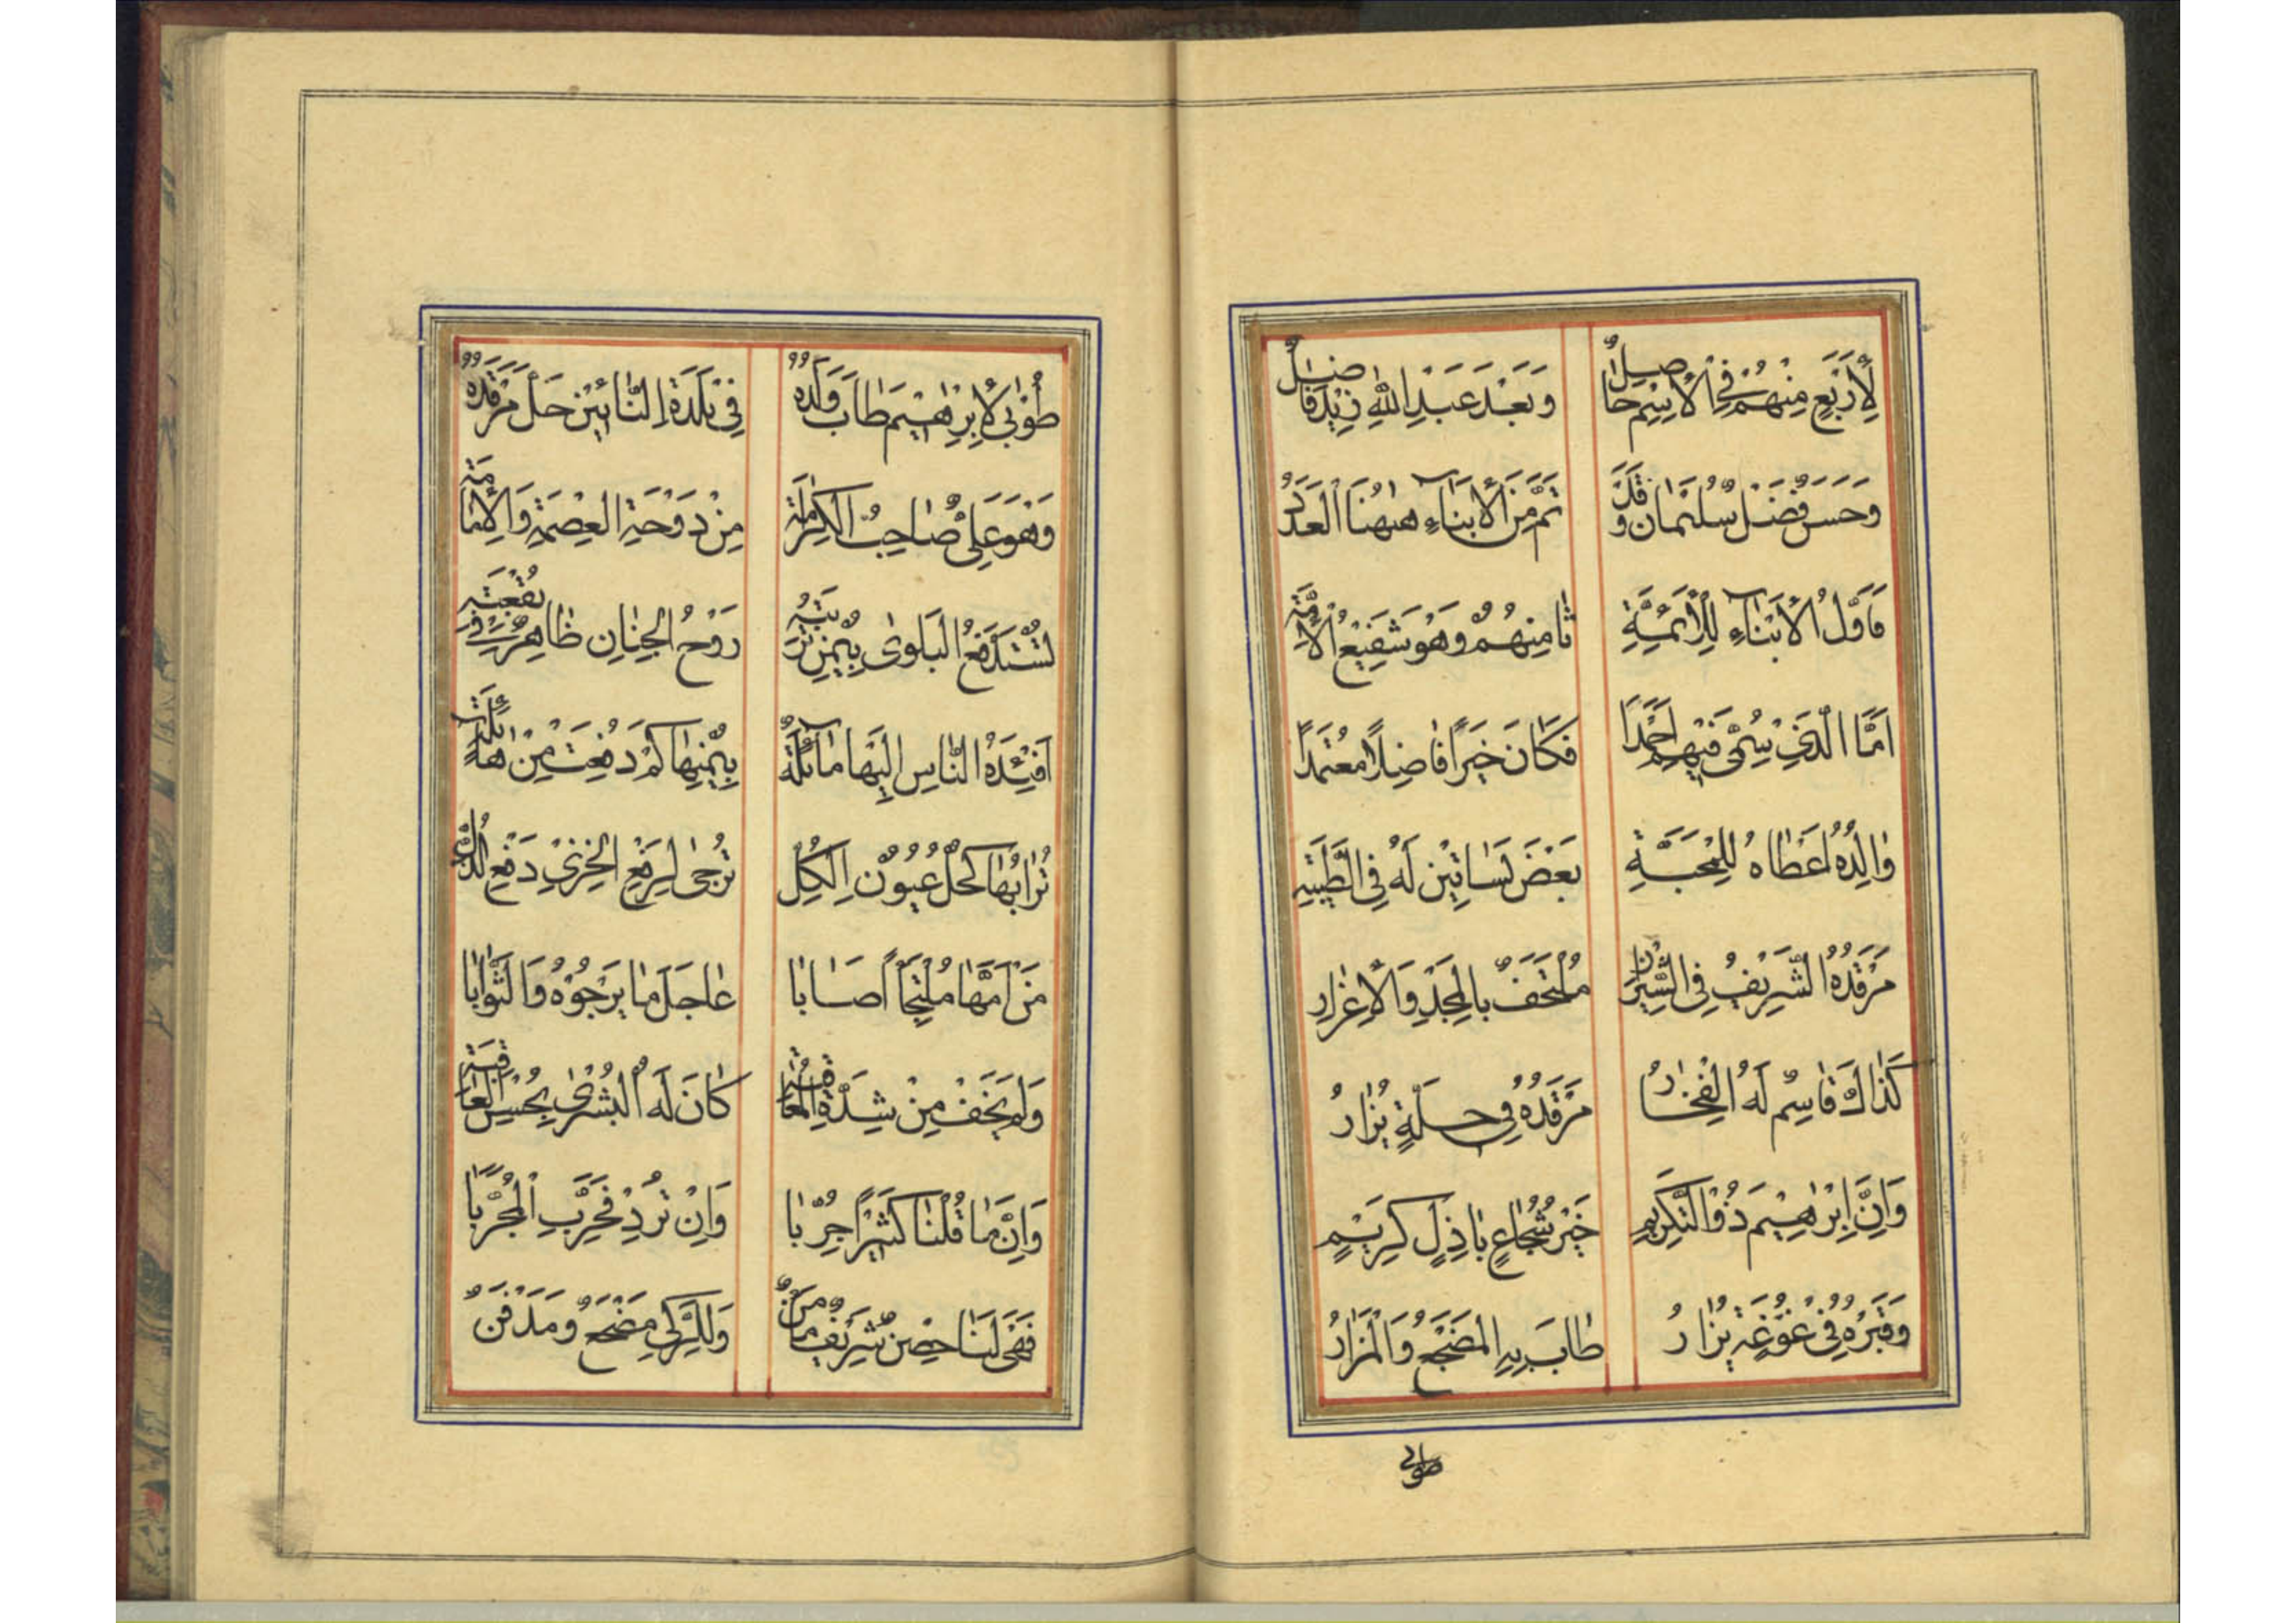 لِأَرْبَعٍ مِنْهُمْ فِي الْاِسْمِ حَاصِلٌ وَبَعْدَ عَبْدِ اللّٰهِ زَيْدٌ فَاضِلٌ
وَحَسَنٌ فَضْلٌ سُلَيْمَانُ وَقَدْ تَمَّ مِنَ الْأَبْنَاءِ هٰهُنَا الْعَدَدُ
فَأَوَّلُ الْأَبْنَاءِ لِلْأَئِمَّةِ ثَامِنُهُمْ وَهُوَ شَفِيعُ الْأُمَّةِ
اَمَّا الَّذِي سُمِّيَ فِيهِمْ اَحْمَدًا فَكَانَ خَيْرًا فَاضِلًا مُعْتَمَدًا
وَالِدُهُ اَعْطَاهُ لِلْمَحَبَّةِ بَعْضَ بَسَاتِينَ لَهُ فِي الطَّيِّبَةِ
مَرْقَدُهُ الشَّرِيفُ فِي الشِّيرَازِ مُلْتَحَفٌ بِالْمَجْدِ وَالْاِعْزَازِ
كَذَاكَ قَاسِمٌ لَهُ الْفَخَارُ مَرْقَدُهُ فِي حِلَّةٍ يُزَارُ
وَاِنَّ اِبْرٰهِيمَ ذُو التَّكْرِيمِ خَيْرُ شُجَاعٍ بَاذِلٍ كَرِيمٍ
وَقَبْرُهُ فِي غَوْغَةٍ يُزَارُ طَابَ بِهِ الْمَضْجَعُ وَالْمَزَارُ
طُوبٰى لِاِبْرٰهِيمَ طَابَ وَلَدُهُ فِي بَلْدَةِ النَّائِينِ حَلَّ مَرْقَدُهُ
وَهْوَ عَلِيٌّ صَاحِبُ الْكَرَامَةِ مِنْ دَوْحَةِ الْعِصْمَةِ وَالْاِمَامَةِ
تُسْتَدْفَعُ الْبَلْوٰى بِيُمْنِ تُرْبَتِهِ رَوْحُ الْجِنَانِ ظَاهِرٌ فِي بُقْعَتِهِ
اَفْئِدَةُ النَّاسِ اِلَيْهَا مَائِلَةٌ بِيُمْنِهَا كَمْ دَفَعَتْ مِنْ هَائِلَةٍ
تُرَابُهَا كُحْلُ عُيُونِ الْكُلِّ تُرْجٰى لِرَفْعِ الْخِزْيِ دَفْعِ الذُّلِّ
مَنْ اَمَّهَا مُلْتَجِأً اَصَابَا عَاجِلَ مَا يَرْجُوهُ وَالثَّوَابَا
وَلَمْ يَخَفْ مِنْ شِدَّةِ الْمُعَاقَبَةِ كَانَ لَهُ الْبُشْرٰى بِحُسْنِ الْعَاقِبَةِ
وَاِنَّ مَا قُلْنَا كَثِيرًا جُرِّبَا وَاِنْ تُرِدْ فَجَرِّبِ الْمُجَرَّبَا
فَهْيَ لَنَا حِصْنٌ شَرِيفٌ مَأْمَنٌ وَلِلزَّكِيِّ مَضْجَعٌ وَمَدْفَنٌ
طوبی